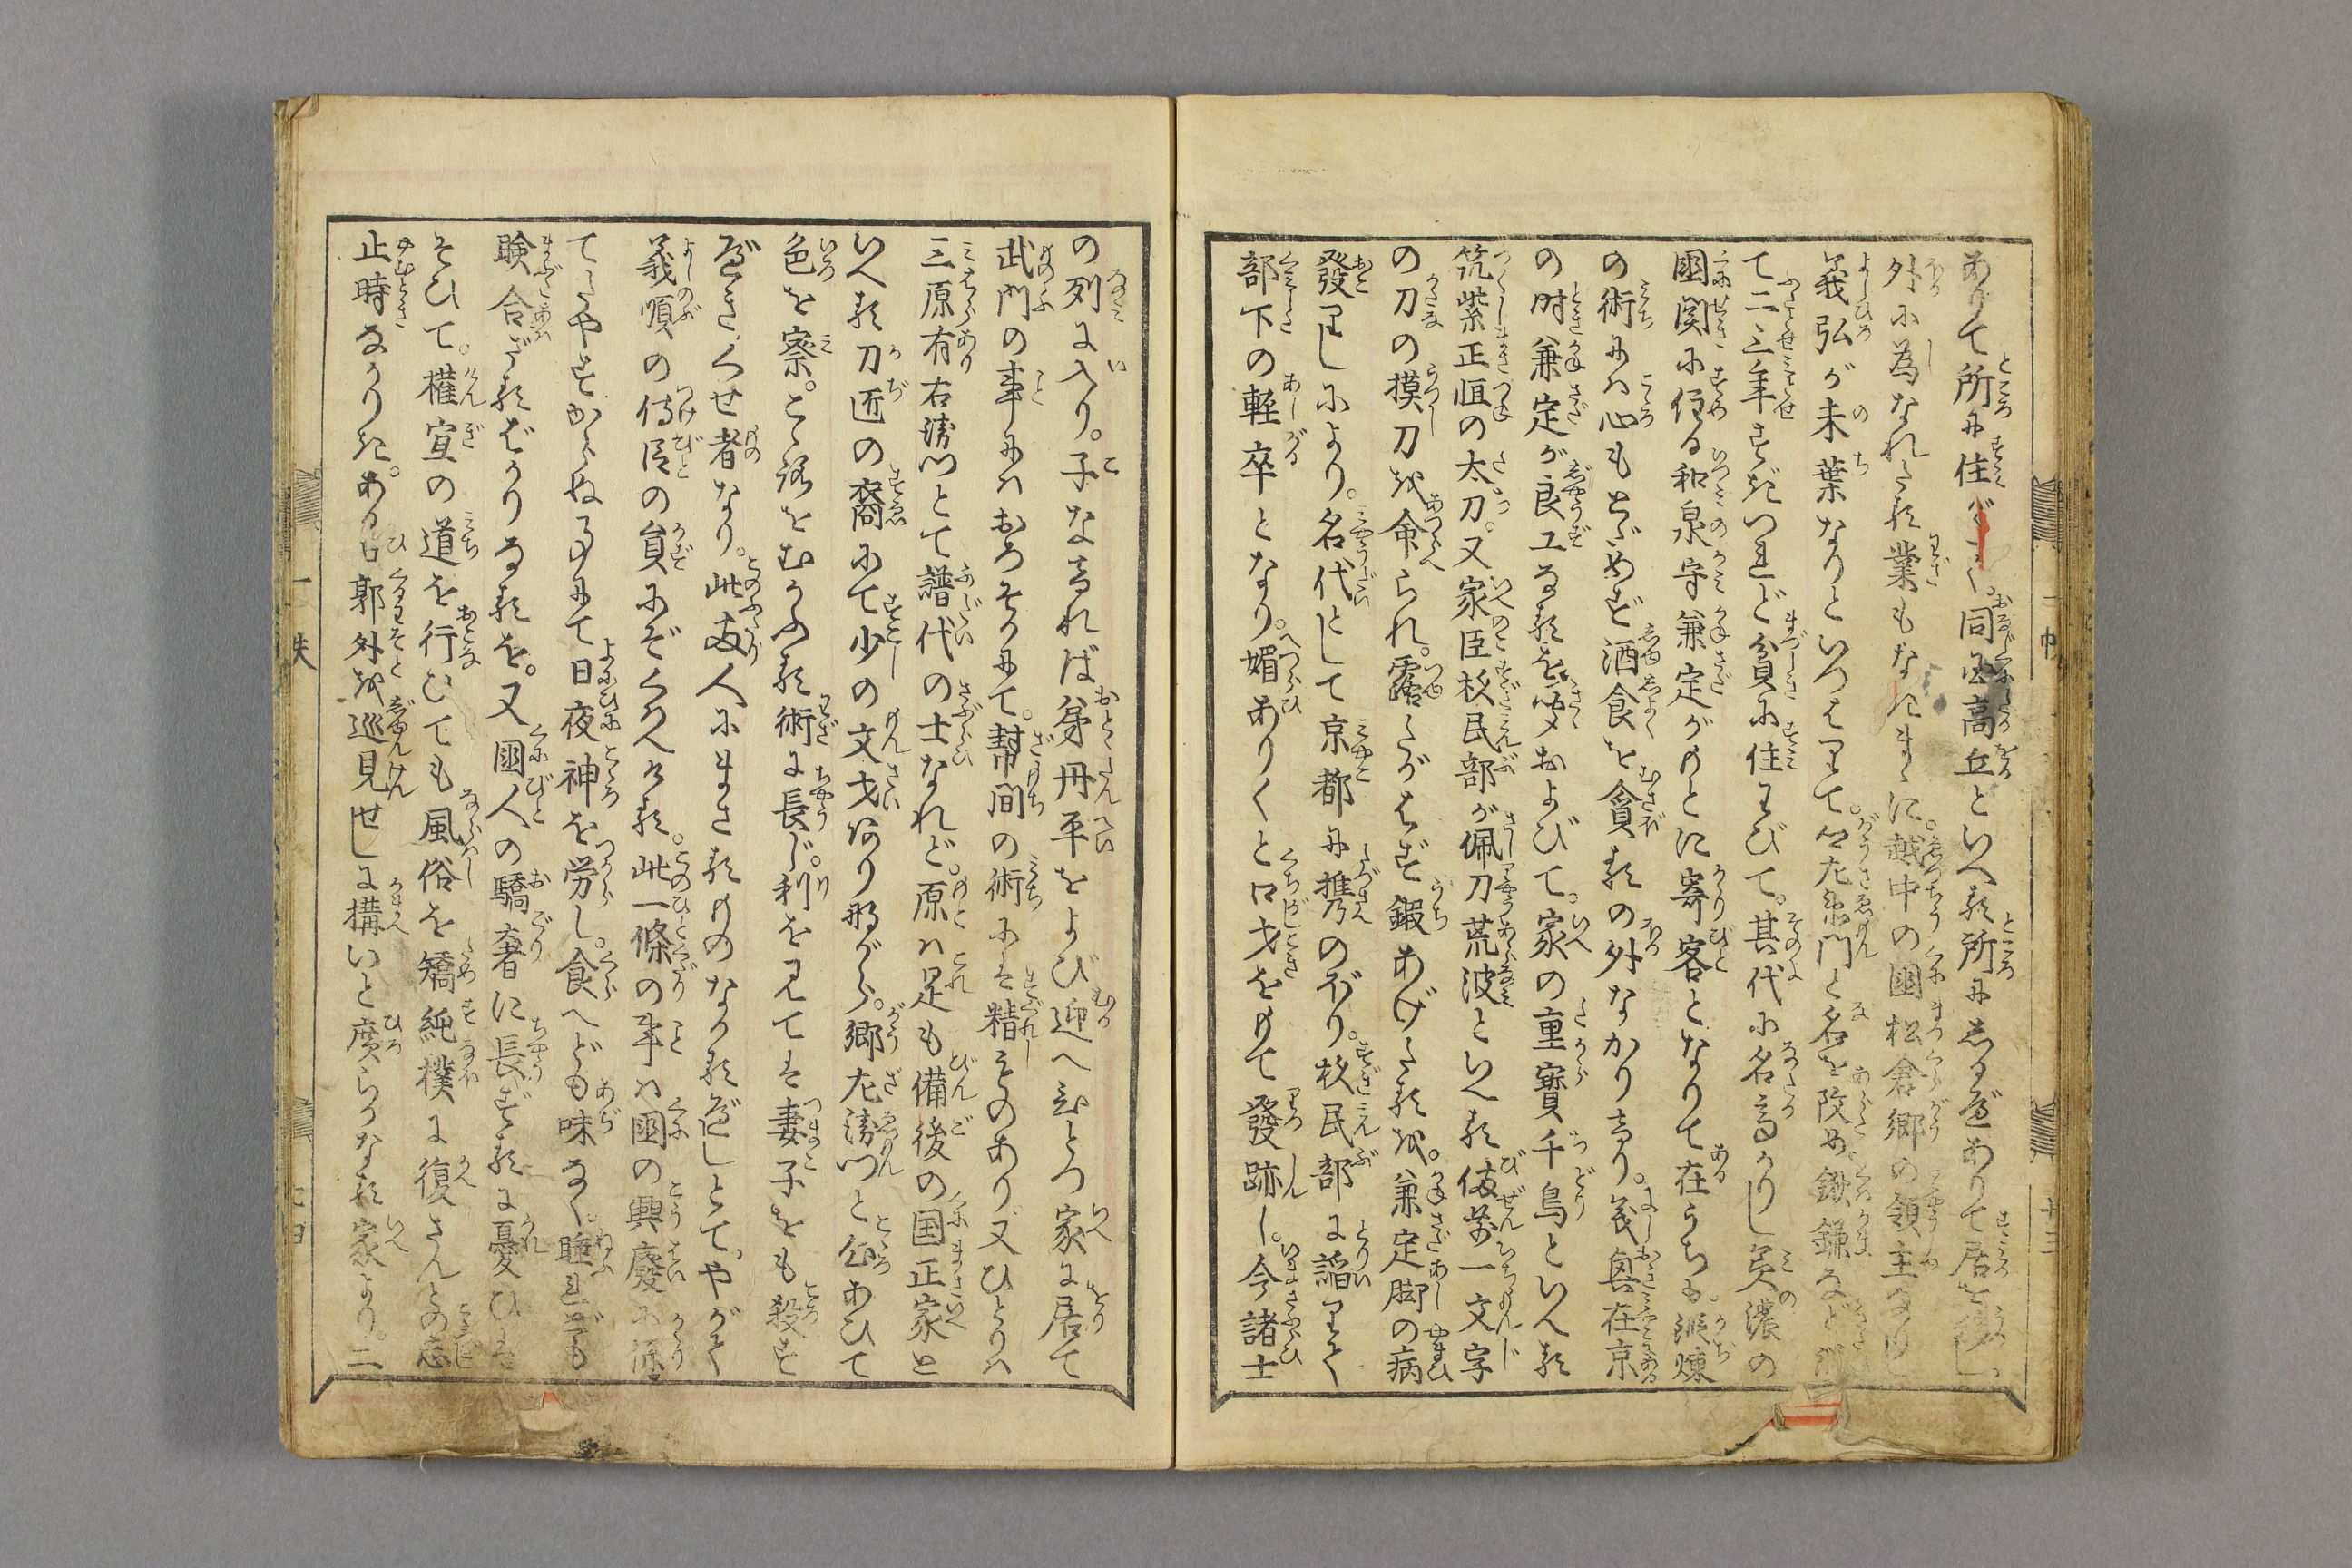 ありて所に住がたく。同国高丘といへる所にしるべありて居を移し
外に為なれたる業もなきまゝに。越中の國松倉郷の領主なりし
義弘が末葉なりといつはりて。郷左衛門と名を改め。鍬鎌など
て二三年すぎつれど貧に住わびて。其代に名高かりし美濃の
國関に住る和泉守兼定がもとに寄客となりて在うちも。鍛煉
の術には心もとゞめず酒食を貪るの外なかりけり。義與在京
の時兼定が良工なるを聞およびて。家の重寳千鳥といへる
筑紫正恒の太刀。又家臣杉民部が佩刀荒波といへる備前一文字
の刀の摸刀を命られ。露たがはず鍛あげたるを。兼定脚の病
發りしにより。名代として京都に携のぼり。杉民部に謟りて
部下の軽卒となり。媚ありくと口才をもて發跡し。今諸士
の列に入り。子なければ弟丹平をよび迎へひとつ家に居て
武門の事にはおろそかにて。幇間の術には精ものあり。又ひとりは
三原有右衛門とて譜代の士なれど。原は是も備後の国正家と
いへる刀匠の裔にて少の文才ありながら。郷左衛門と心あひて
色を察。こゝろをむかふる術に長じ。利を見ては妻子をも殺す
べきくせ者なり。此両人にまさるものなかるべしとて。やがて
義順の侍臣の員にぞくはへける。此一條の事は國の興廢に係
てたやすからぬ事にて日夜神を労し。食へども味なく。睡れども
睫合ざるばかりなるを。又國人の驕奢に長ずるに憂ひは
そひて。權宜の道を行ひても風俗を矯純樸に復さんとの志
止時なかりき。ある日郭外を巡見せしに構いと廣らかなる家より。二